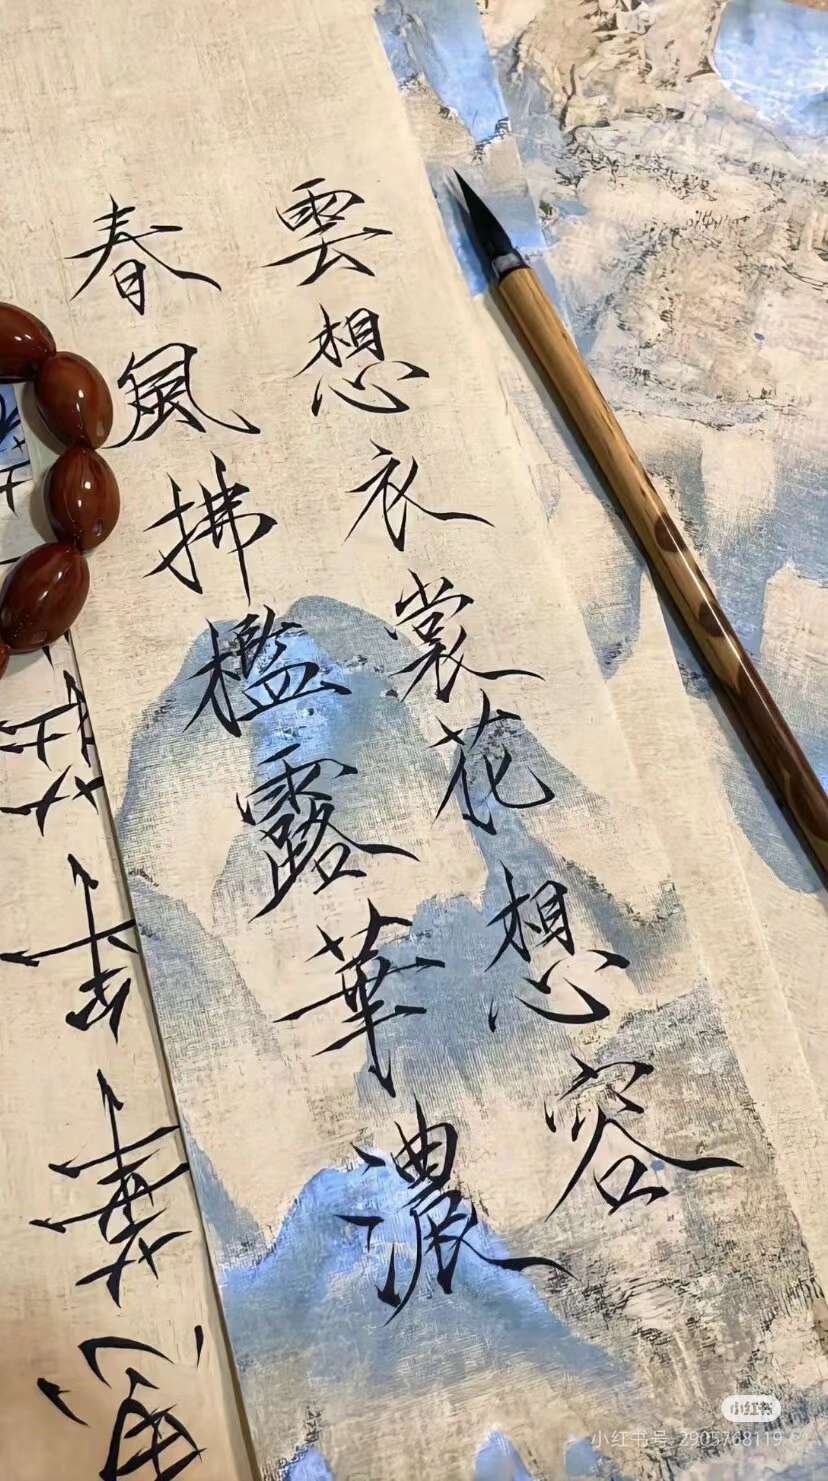 雲想衣裳花想容
春風拂檻露華濃
小红书
小红书号: 2905768119